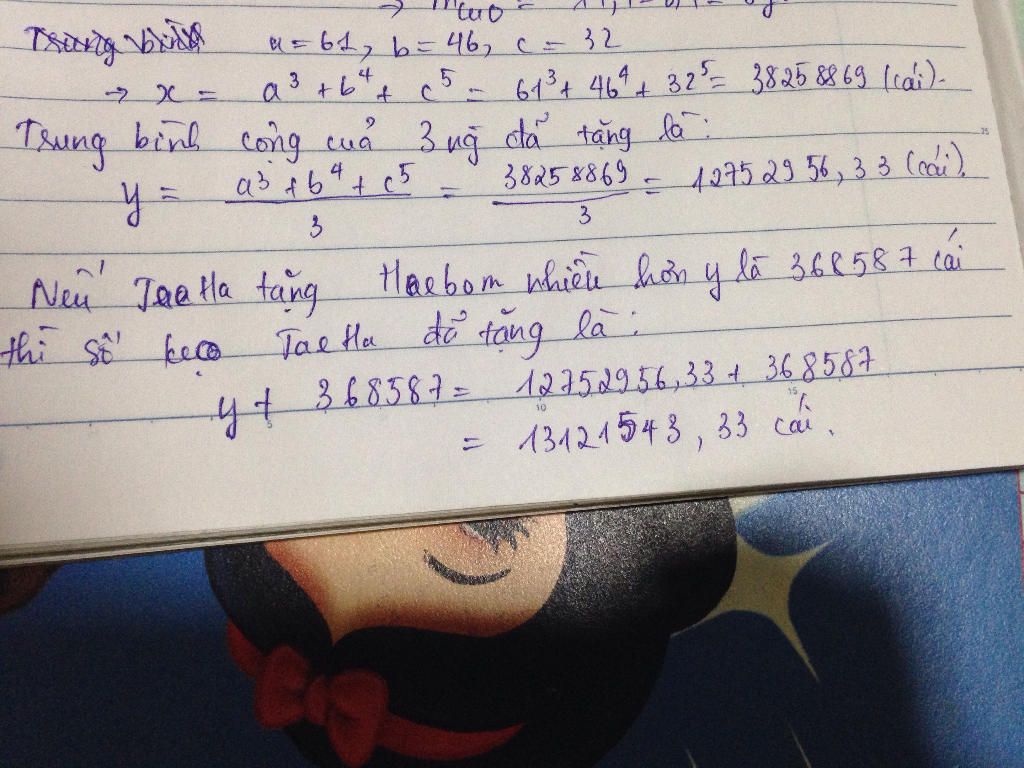 a = 61, b = 46, c = 32
→ x = a³ + b⁴ + c⁵ = 61³ + 46⁴ + 32⁵ = 38258869 (cái).
Trung bình cộng cuả 3 ng đã tặng là:
y = (a³ + b⁴ + c⁵)/3 = 38258869/3 = 12752956,33 (cái).
Nếu TaeHa tặng Haebom nhiều hơn y là 368587 cái
thì số kẹo TaeHa đã tặng là:
y + 368587 = 12752956,33 + 368587
= 13121543,33 cái.